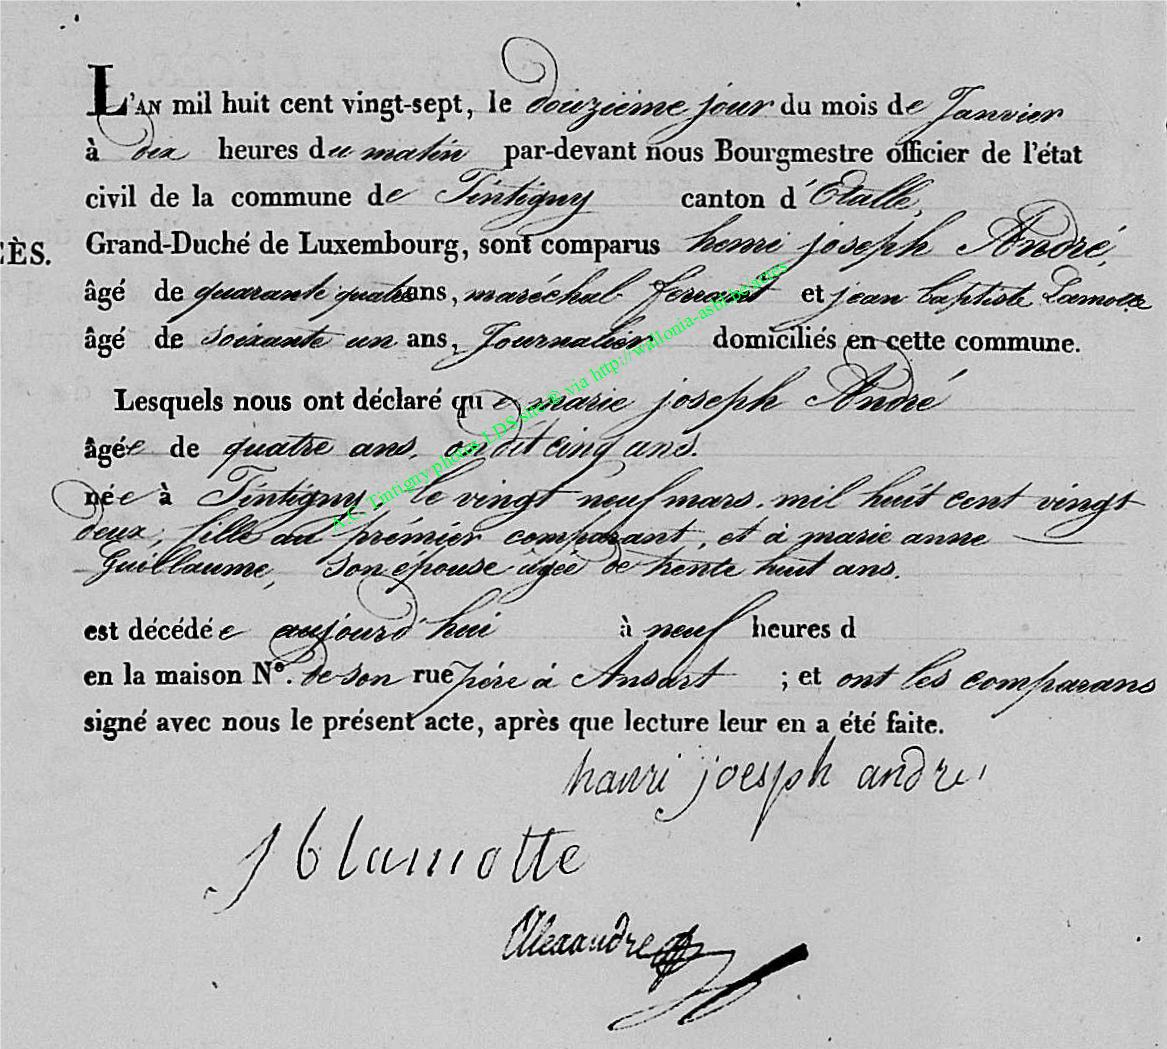 L'AN mil huit cent vingt-sept, le douzième jour du mois de Janvier
à dix heures du matin par-devant nous Bourgmestre officier de l'état
civil de la commune de Tintigny canton d'Etalle,
ÈS. Grand-Duché de Luxembourg, sont comparus henri joseph André,
âgé de quarante quatre ans, maréchal ferrant et jean baptiste Lamotte
âgé de soixante un ans, Journalier domiciliés en cette commune.
Lesquels nous ont déclaré que marie joseph André
âgée de quatre ans, on dit cinq ans.
née à Tintigny, le vingt neuf mars. mil huit cent vingt
deux, fille au prémier comparant, et à marie anne
Guillaume, son épouse agée de trente huit ans.
est décédée aujourd'hui à neuf heures d
en la maison No. de son rue père à Ansart ; et ont les comparans
signé avec nous le présent acte, après que lecture leur en a été faite.
hanri joesph andre
J b lamotte
Alexandre
A.C. Tintigny photos LDS site @ via http://wallonia-asbl.be/actes